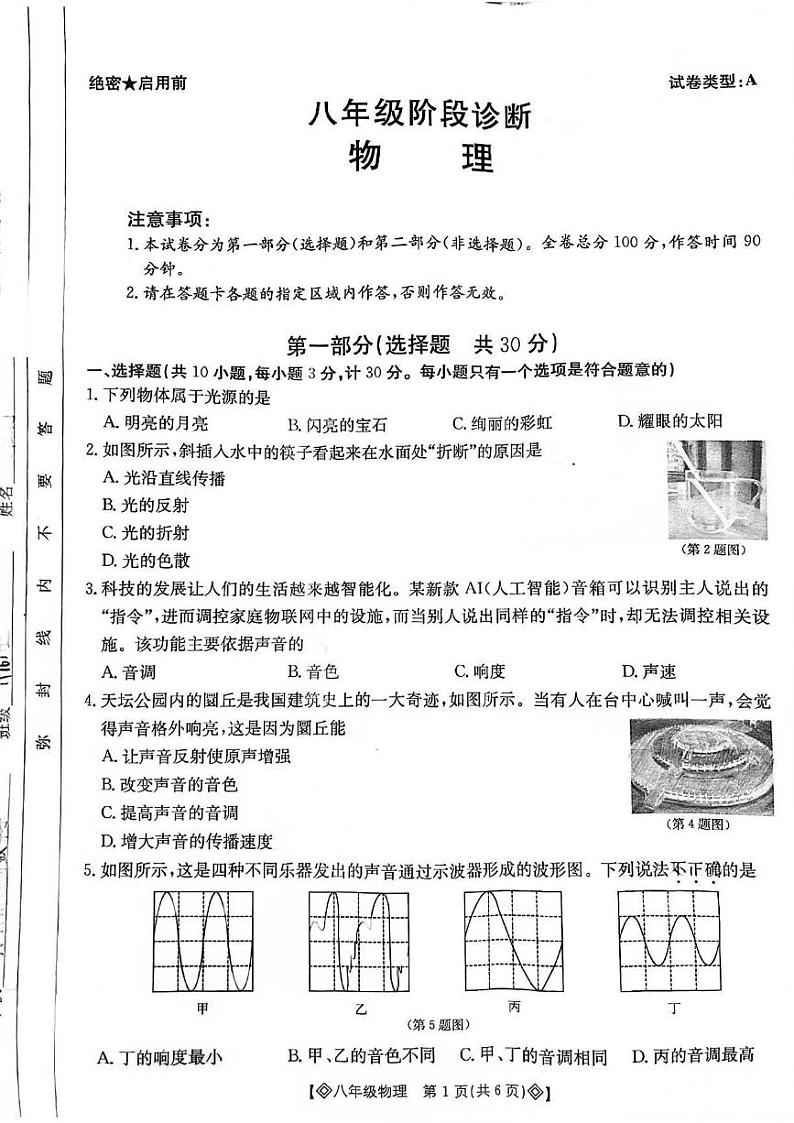 绝密★启用前
试卷类型:A
八年级阶段诊断
物 理
注意事项:
1.本试卷分为第一部分(选择题)和第二部分(非选择题)。全卷总分100分,作答时间90
分钟。
2.请在答题卡各题的指定区域内作答,否则作答无效。
第一部分(选择题 共30分)
一、选择题(共10小题,每小题3分,计30分。每小题只有一个选项是符合题意的)
1.下列物体属于光源的是
A.明亮的月亮 B.闪亮的宝石 C.绚丽的彩虹 D.耀眼的太阳
2.如图所示,斜插入水中的筷子看起来在水面处“折断”的原因是
A.光沿直线传播
B.光的反射
C.光的折射
D.光的色散
(第2题图)
3.科技的发展让人们的生活越来越智能化。某新款AI(人工智能)音箱可以识别主人说出的
“指令”,进而调控家庭物联网中的设施,而当别人说出同样的“指令”时,却无法调控相关设
施。该功能主要依据声音的
A.音调 B.音色 C.响度 D.声速
4.天坛公园内的圜丘是我国建筑史上的一大奇迹,如图所示。当有人在台中心喊叫一声,会觉
得声音格外响亮,这是因为圜丘能
A.让声音反射使原声增强
B.改变声音的音色
C.提高声音的音调
D.增大声音的传播速度
(第4题图)
5.如图所示,这是四种不同乐器发出的声音通过示波器形成的波形图。下列说法不正确的是
甲 乙 丙 丁
(第5题图)
A.丁的响度最小 B.甲、乙的音色不同 C.甲、丁的音调相同 D.丙的音调最高
【◇八年级物理 第1页(共6页)◇】
弥 封 线 内 不 要 答 题
姓名
班级